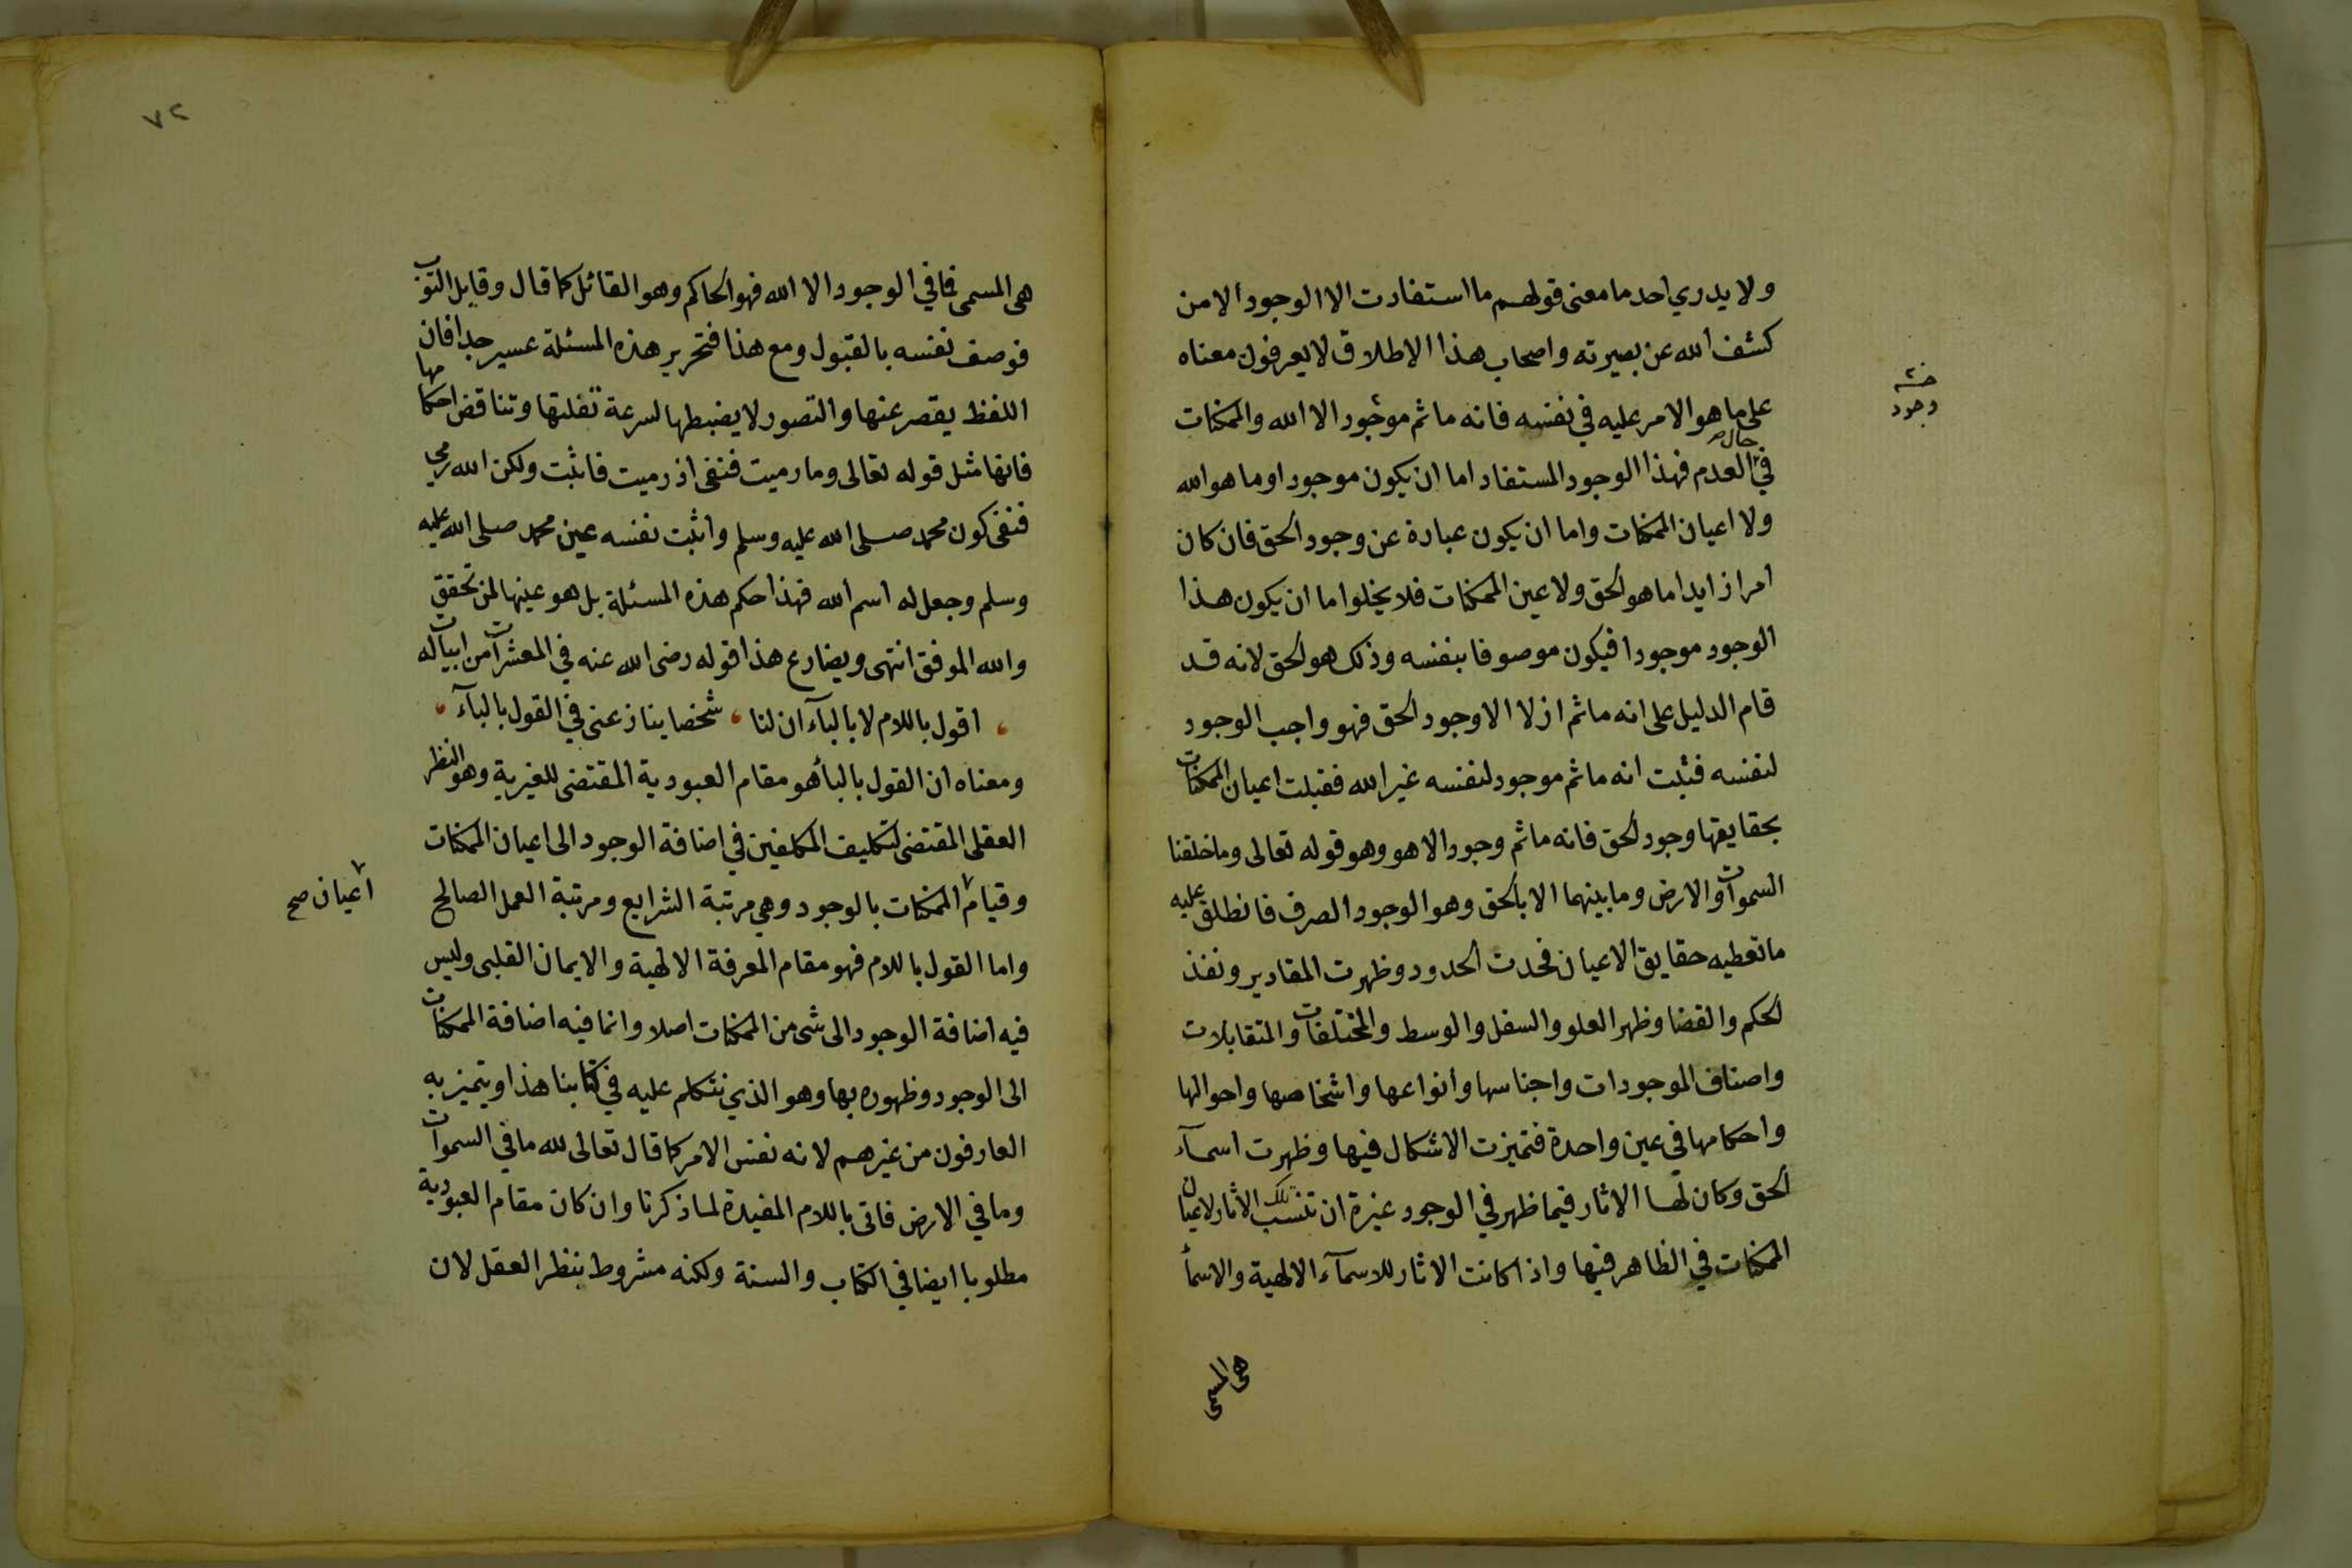 ولا يدري احد ما معنى قولهم ما استفادت الا الوجود الا من
كشف الله عن بصيرته واصحاب هذا الاطلاق لا يعرفون معناه
على ما هو الامر عليه في نفسه فانه ما ثم موجود الا الله والممكنات
وجود
في حال العدم فهذا الوجود المستفاد اما ان يكون موجودا وما هو الله
ولا اعيان الممكنات واما ان يكون عبارة عن وجود الحق فان كان
امرا زايدا ما هو الحق ولا عين الممكنات فلا يخلو اما ان يكون هذا
الوجود موجودا فيكون موصوفا بنفسه وذلك هو الحق لانه قد
قام الدليل على انه ما ثم ازلا الا وجود الحق فهو واجب الوجود
لنفسه فثبت انه ما ثم موجود لنفسه غير الله فقبلت اعيان الممكنات
بحقايقها وجود الحق فانه ما ثم وجود الا هو وهو قوله تعالى وما خلقنا
السموات والارض وما بينهما الا بالحق وهو الوجود الصرف فانطلق عليه
ما تعطيه حقايق الاعيان فحدت الحدود وظهرت المقادير ونفذ
الحكم والقضا وظهر العلو والسفل والوسط والمختلفات والمتقابلات
واصناف الموجودات واجناسها وانواعها واشخاصها واحوالها
واحكامها في عين واحدة فتميزت الاشكال فيها وظهرت اسمآء
الحق وكان لها الاثار فيما ظهر في الوجود غيرة ان تنسب تلك الاثار لاعيان
الممكنات في الظاهر فيها واذا كانت الاثار للاسمآء الالهية والاسمأ
هى المسمى
٧٢
هى المسمى فما في الوجود الا الله فهو الحاكم وهو القائل كما قال وقابل التوب
فوصف نفسه بالقبول ومع هذا فتحرير هذه المسئلة عسير جدا فان
اللفظ يقصر عنها والتصور لا يضبطها لسرعة تفلتها وتناقض احكامها
فانها مثل قوله تعالى وما رميت فنفى اذ رميت فاثبت ولكن الله رمى
فنفى كون محمد صلى الله عليه وسلم واثبت نفسه عين محمد صلى الله عليه
وسلم وجعل له اسم الله فهذا حكم هذه المسئلة بل هو عينها لمن تحقق
والله الموفق انتهى ويضارع هذا قوله رضى الله عنه في المعشرات من ابيات له
اقول باللام لا بالبآء ان لنا ، شخصا ينازعنى في القول بالبآء ،
ومعناه ان القول بالبأ هو مقام العبودية المقتضى للغيرية وهو النظر
العقلى المقتضى لتكليف المكلفين في اضافة الوجود الى اعيان الممكنات
وقيام الممكنات بالوجود وهي مرتبة الشرايع ومرتبة العمل الصالح
اعيان صح
واما القول باللام فهو مقام المعرفة الالهية والايمان القلبى وليس
فيه اضافة الوجود الى شى من الممكنات اصلا وانما فيه اضافة الممكنات
الى الوجود وظهوره بها وهو الذي نتكلم عليه في كتابنا هذا ويتميز به
العارفون من غيرهم لانه نفس الامر كما قال تعالى لله ما في السموات
وما في الارض فاتى باللام المفيدة لما ذكرنا وان كان مقام العبودية
مطلوبا ايضا في الكتاب والسنة ولكنه مشروط بنظر العقل لان